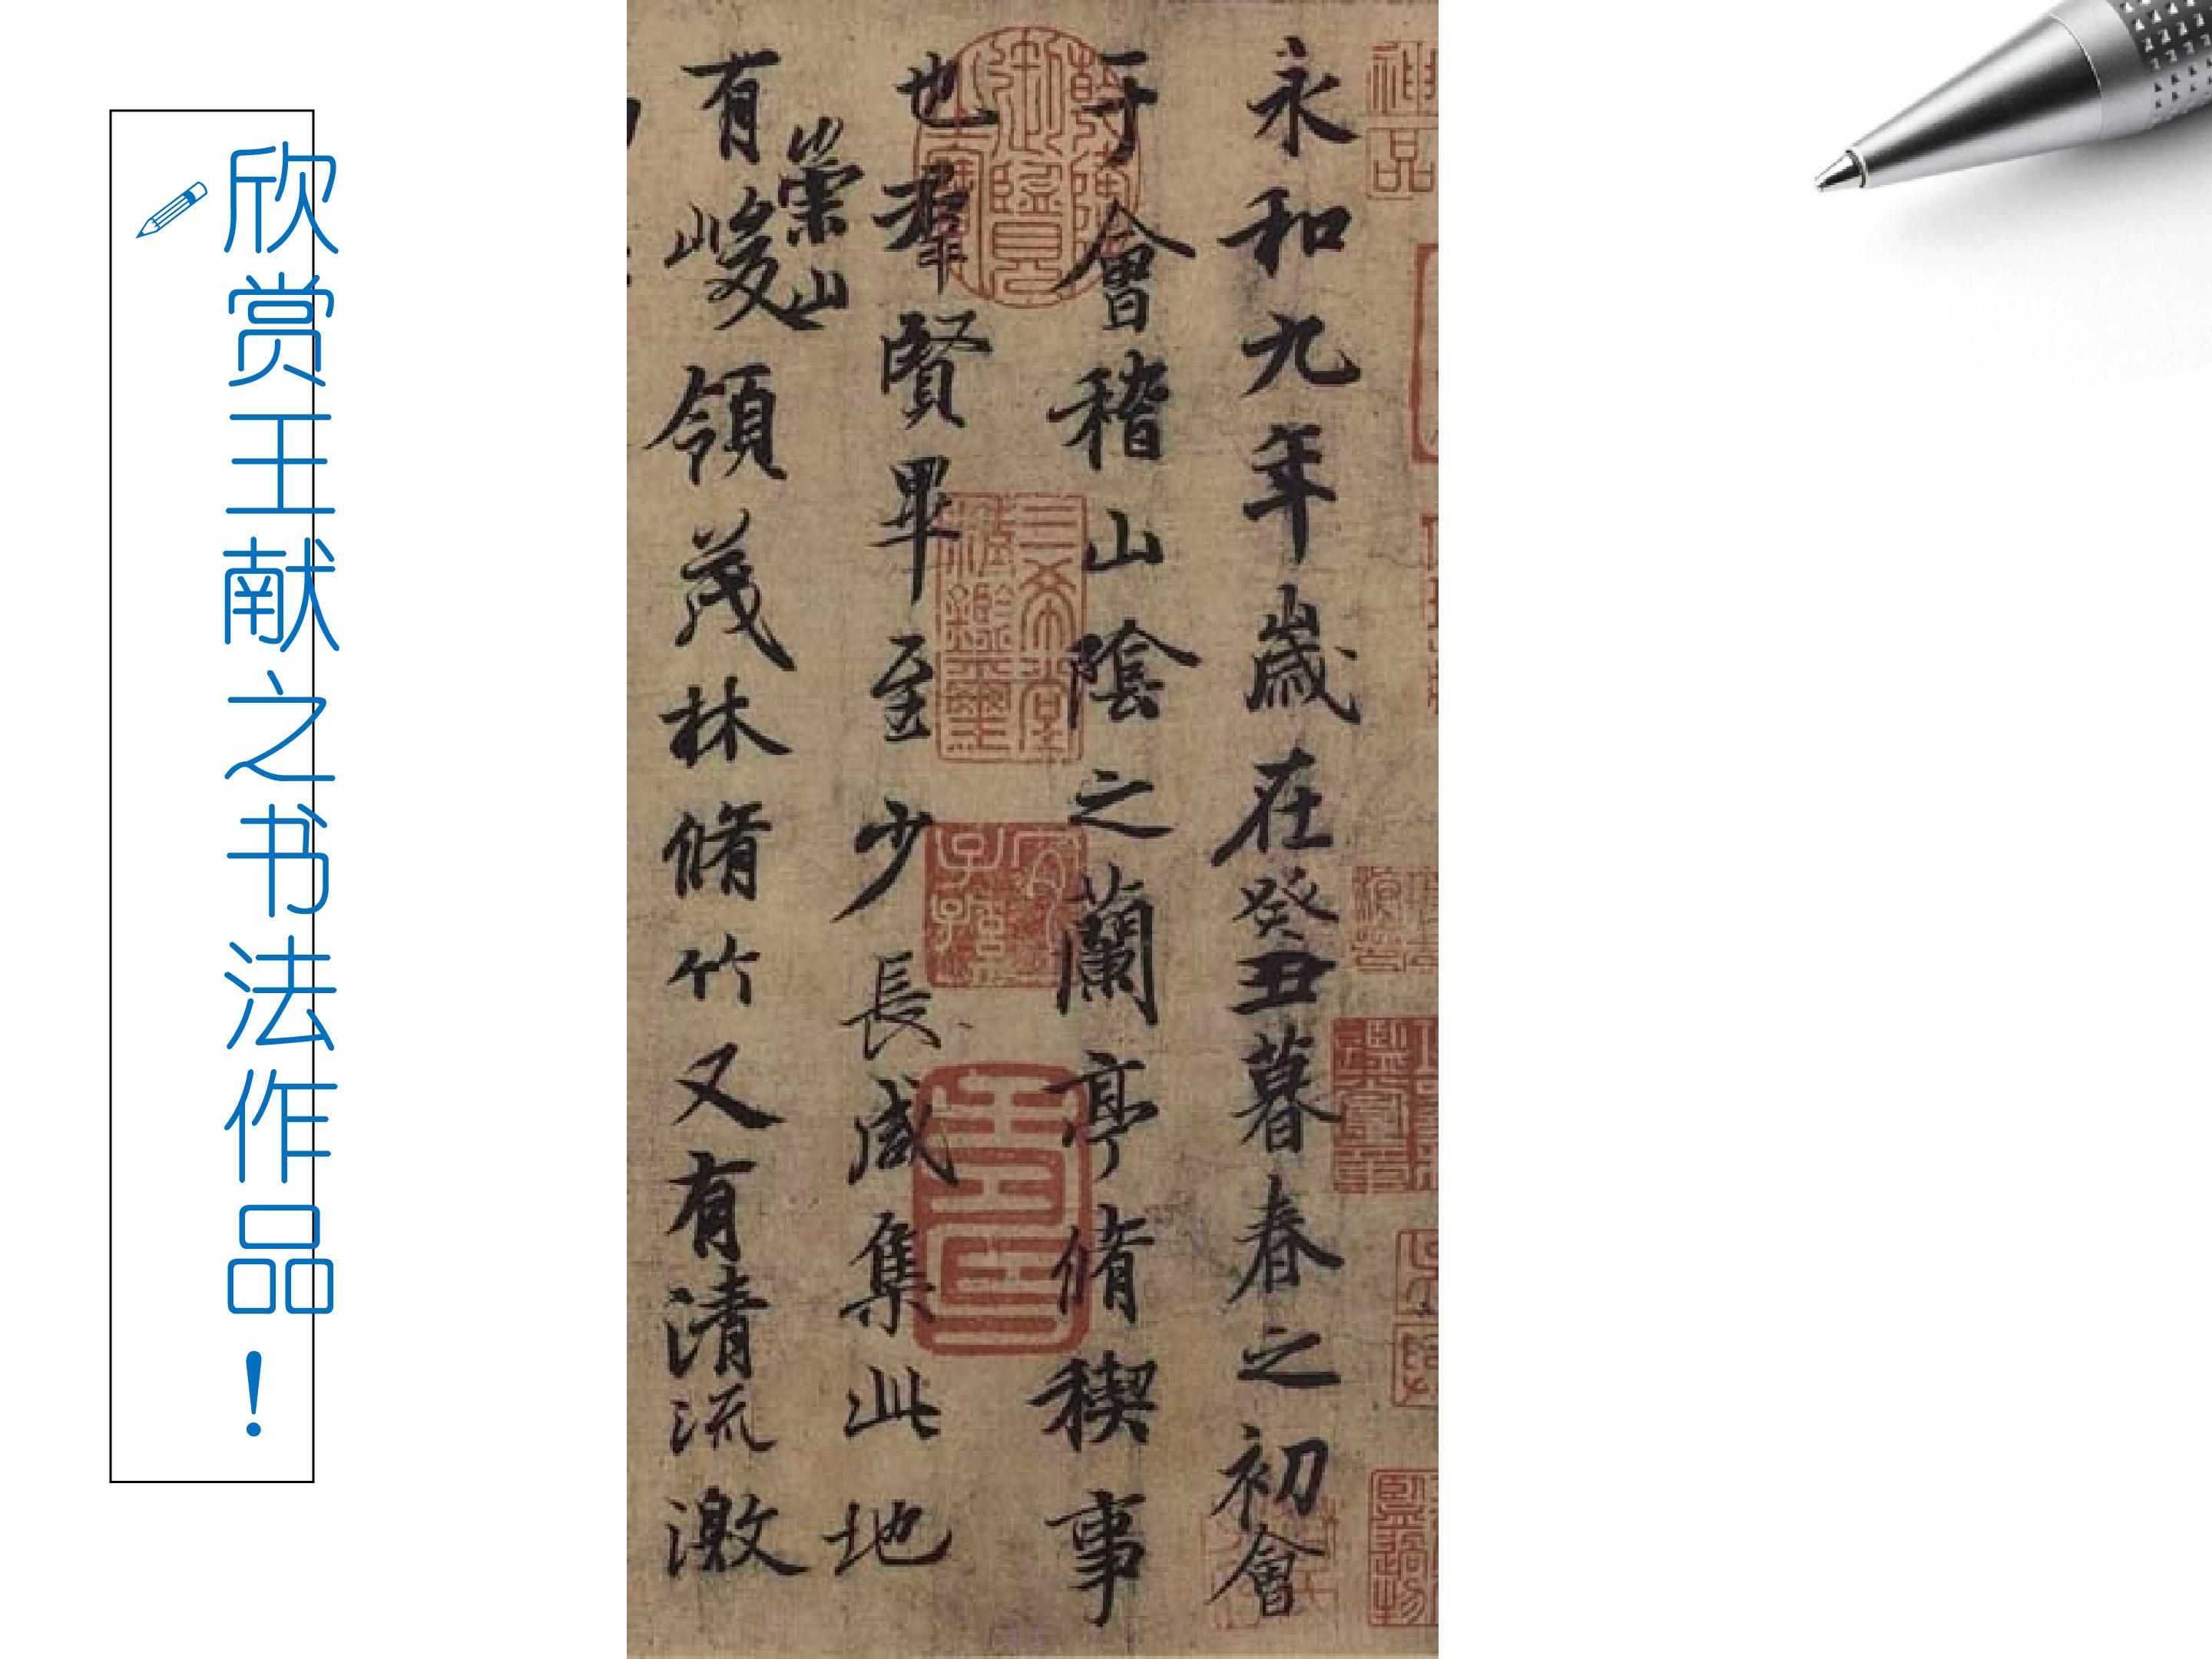 欣赏王献之书法作品!
永和九年歲在癸丑暮春之初會
于會稽山陰之蘭亭脩稧事
也羣賢畢至少長咸集此地
有崇山峻領茂林脩竹又有清流激
神品
三希堂
精鑑璽
宜子孫